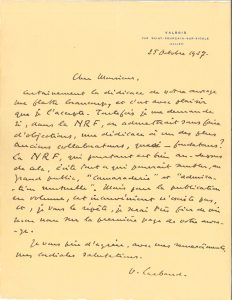 VALBOIS
PAR SAINT-POURÇAIN-SUR-SIOULE
ALLIER
25 Octobre 1927.
Cher Monsieur,
Certainement la dédicace de votre ouvrage
me flatte beaucoup, et c'est avec plaisir
que je l'accepte. Toutefois je me demande
si, dans la NRF, on admettrait sans faire
d'objections, une dédicace à un des plus
anciens collaborateurs, quasi-fondateurs?
La NRF, qui pourtant est bien au-dessus
de cela, évite tout ce qui pourrait sembler, au
grand public, "camaraderie" et "admira-
tion mutuelle". Mais pour la publication
en volume, cet inconvénient n'existe pas,
et, je vous le répète, je serai très fier de voir
mon nom sur la première page de votre ouvra-
ge.
Je vous prie d'agréer, avec mes remerciements,
mes cordiales salutations.
V. Larbaud.